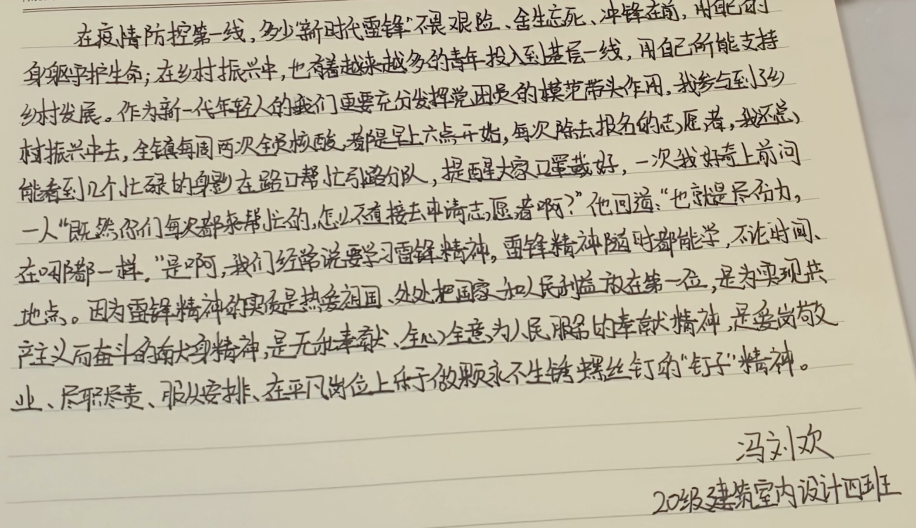 在疫情防控第一线，多少"新时代雷锋"不畏艰险、舍生忘死、冲锋在前，用自己的
身躯守护生命；在乡村振兴中，也有着越来越多的青年投入到基层一线，用自己所能支持
乡村发展。作为新一代年轻人的我们更要充分发挥党团员的模范带头作用，我参与到了乡
村振兴中去，全镇每周两次全员核酸，都是早上六点开始，每次除去报名的志愿者，我还总
能看到几个忙碌的身影在路口帮忙引路分队，提醒大家口罩戴好，一次我好奇上前问
一人"既然你们每次都来帮忙的，怎么不直接去申请志愿者啊？"他回道："也就是尽份力，
在哪都一样。"是啊，我们经常说要学习雷锋精神，雷锋精神随时都能学，不论时间、
地点。因为雷锋精神的实质是热爱祖国、处处把国家和人民利益放在第一位，是为实现共
产主义而奋斗的献身精神，是无私奉献、全心全意为人民服务的奉献精神，是爱岗敬
业、尽职尽责、服从安排、在平凡岗位上乐于做颗永不生锈螺丝钉的"钉子"精神。
冯刘欢
20级建筑室内设计四班